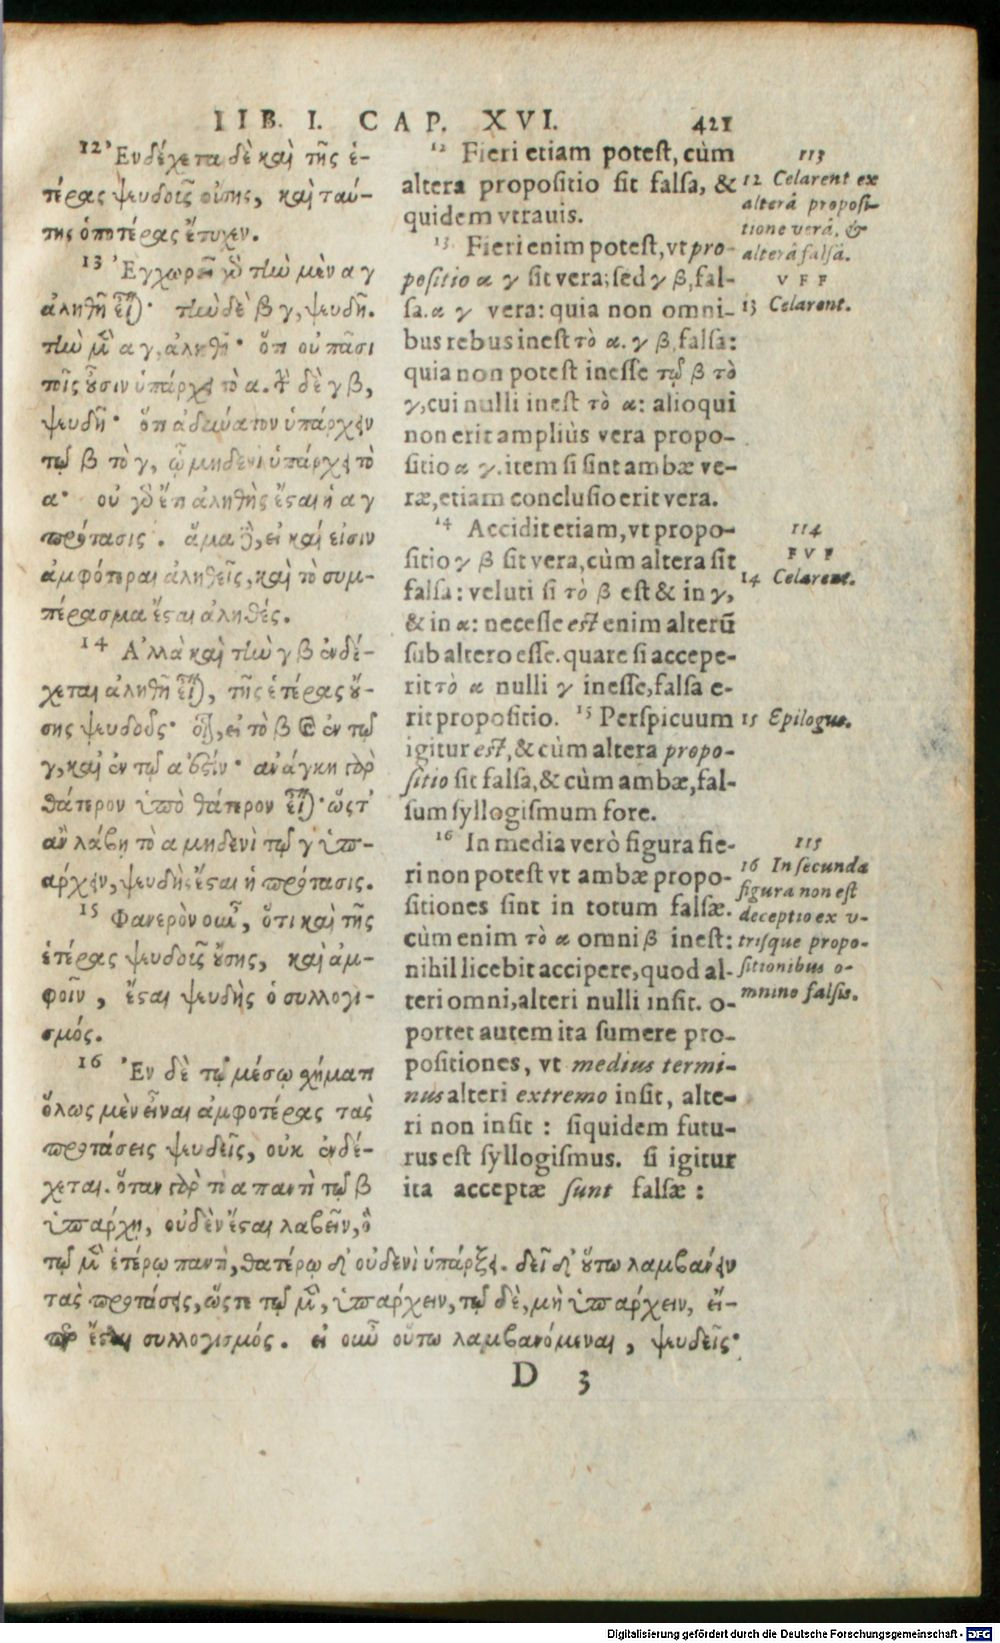 LIB. I. CAP. XVI. 421
12 Ἐνδέχεται δὲ καὶ τῆς ἑ-
τέρας ψευδοῦς οὔσης, καὶ ταύ-
της ὁποτέρας ἔτυχεν.
13 Ἐγχωρεῖ γὸ τὴν μὲν α γ
ἀληθῆ εἶναι· τὴν δὲ β γ, ψευδῆ.
τὴν μὲν α γ, ἀληθῆ· ὅτι οὐ πᾶσι
τοῖς οὖσιν ὑπάρχει τὸ α. τὴν δὲ γ β,
ψευδῆ· ὅτι ἀδύνατον ὑπάρχειν
τῷ β τὸ γ, ᾧ μηδενὶ ὑπάρχει τὸ
α· οὐ γὸ ἔτι ἀληθὴς ἔσται ἡ α γ
πρότασις. ἅμα δὲ, εἰ καί εἰσιν
ἀμφότεραι ἀληθεῖς, καὶ τὸ συμ-
πέρασμα ἔσται ἀληθές.
14 Ἀλλὰ καὶ τὴν γ β ἐνδέ-
χεται ἀληθῆ εἶναι, τῆς ἑτέρας οὔ-
σης ψευδοῦς· οἷον, εἰ τὸ β καὶ ἐν τῷ
γ, καὶ ἐν τῷ α ἐστίν· ἀνάγκη γὰρ
θάτερον ὑπὸ θάτερον εἶναι· ὥστ'
ἂν λάβῃ τὸ α μηδενὶ τῷ γ ὑπ-
άρχειν, ψευδὴς ἔσται ἡ πρότασις.
15 Φανερὸν οὖν, ὅτι καὶ τῆς
ἑτέρας ψευδοῦς οὔσης, καὶ ἀμ-
φοῖν, ἔσται ψευδὴς ὁ συλλογι-
σμός.
16 Ἐν δὲ τῷ μέσῳ σχήματι
ὅλως μὲν εἶναι ἀμφοτέρας τὰς
προτάσεις ψευδεῖς, οὐκ ἐνδέ-
χεται. ὅταν γὰρ τὸ α παντὶ τῷ β
ὑπάρχῃ, οὐδὲν ἔσται λαβεῖν, ὃ
τῷ μὲν ἑτέρῳ παντὶ, θατέρῳ δ' οὐδενὶ ὑπάρξει. δεῖ δ' οὕτω λαμβάνειν
τὰς προτάσεις, ὥστε τῷ μὲν, ὑπάρχειν, τῷ δὲ, μὴ ὑπάρχειν, εἴ-
περ ἔσται συλλογισμός. εἰ οὖν οὕτω λαμβανόμεναι, ψευδεῖς·
12 Fieri etiam potest, cùm
altera propositio sit falsa, &
quidem vtrauis.
13 Fieri enim potest, vt pro-
positio α γ sit vera; sed γ β, fal-
sa. α γ vera: quia non omni-
bus rebus inest τὸ α. γ β, falsa:
quia non potest inesse τῷ β τὸ
γ, cui nulli inest τὸ α: alioqui
non erit ampliùs vera propo-
sitio α γ. item si sint ambæ ve-
ræ, etiam conclusio erit vera.
14 Accidit etiam, vt propo-
sitio γ β sit vera, cùm altera sit
falsa: veluti si τὸ β est & in γ,
& in α: necesse est enim alterū
sub altero esse. quare si accepe-
rit τὸ α nulli γ inesse, falsa e-
rit propositio. 15 Perspicuum
igitur est, & cùm altera propo-
sitio sit falsa, & cùm ambæ, fal-
sum syllogismum fore.
16 In media verò figura fie-
ri non potest vt ambæ propo-
sitiones sint in totum falsæ.
cùm enim τὸ α omni β inest:
nihil licebit accipere, quod al-
teri omni, alteri nulli insit. o-
portet autem ita sumere pro-
positiones, vt medius termi-
nus alteri extremo insit, alte-
ri non insit : siquidem futu-
rus est syllogismus. si igitur
ita acceptæ sunt falsæ :
113
12 Celarent ex
alterâ proposi-
tione verâ, &
alterâ falsâ.
V F F
13 Celarent.
114
F V F
14 Celarent.
15 Epilogus.
115
16 In secunda
figura non est
deceptio ex v-
trisque propo-
sitionibus o-
mnino falsis.
D 3
Digitalisierung gefördert durch die Deutsche Forschungsgemeinschaft - DFG